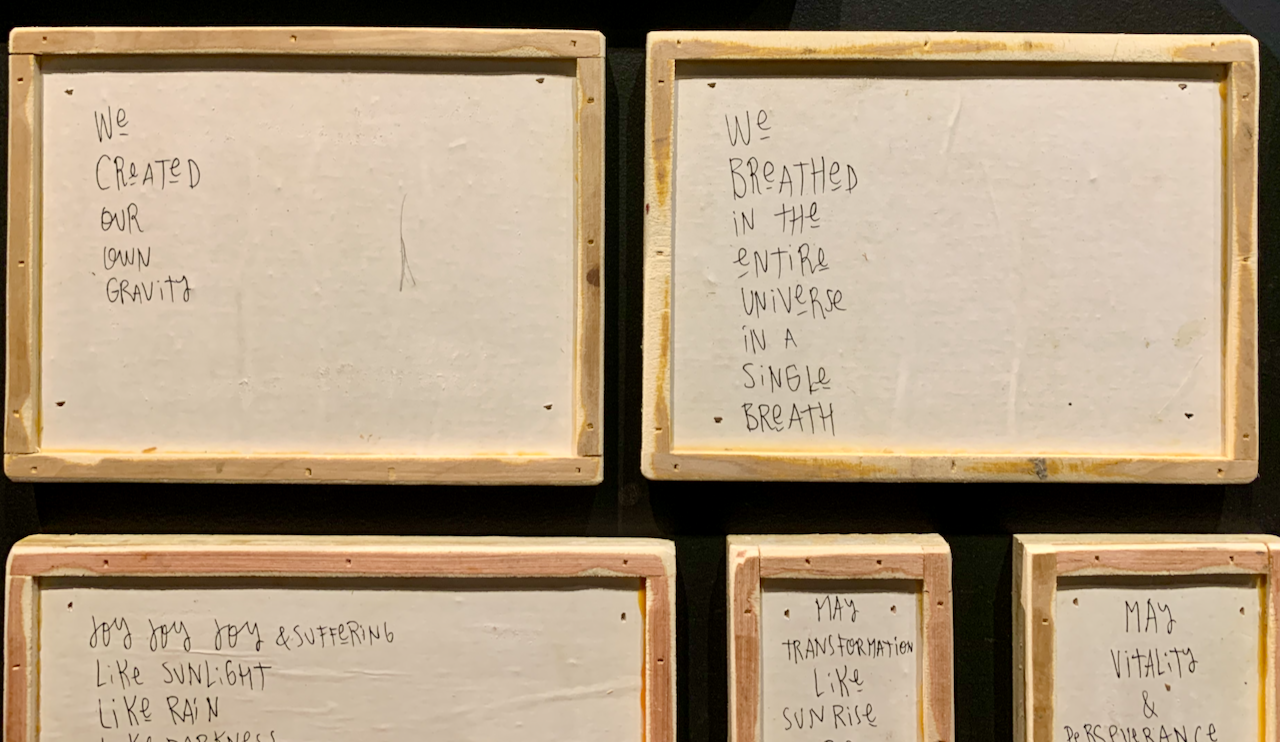 We
CReATeD
OUR
OWN
GRAViTY
We
BReATHeD
iN THe
eNTiRe
UNiVeRSe
iN A
SiNGLe
BReATH
JOY JOY JOY & SUFFeRiNG
LiKe SUNLiGHT
LiKe RAiN
LiKe DARKNeSS
MAY
TRANSFORMATiON
LiKe
SUNRiSe
MAY
ViTALiTY
&
PeRSeVeRANCe